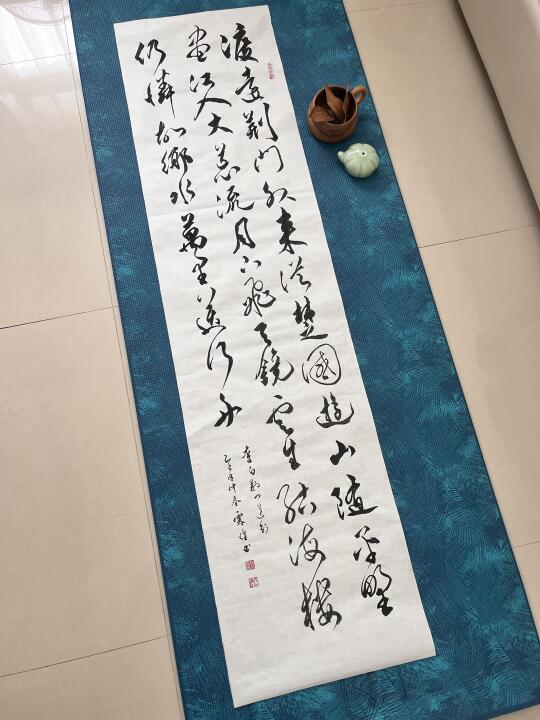 渡遠荊門外來從楚國遊山隨平野
盡江入大荒流月下飛天鏡雲生結海樓
仍憐故鄉水萬里送行舟
李白荊門送別
年仲書